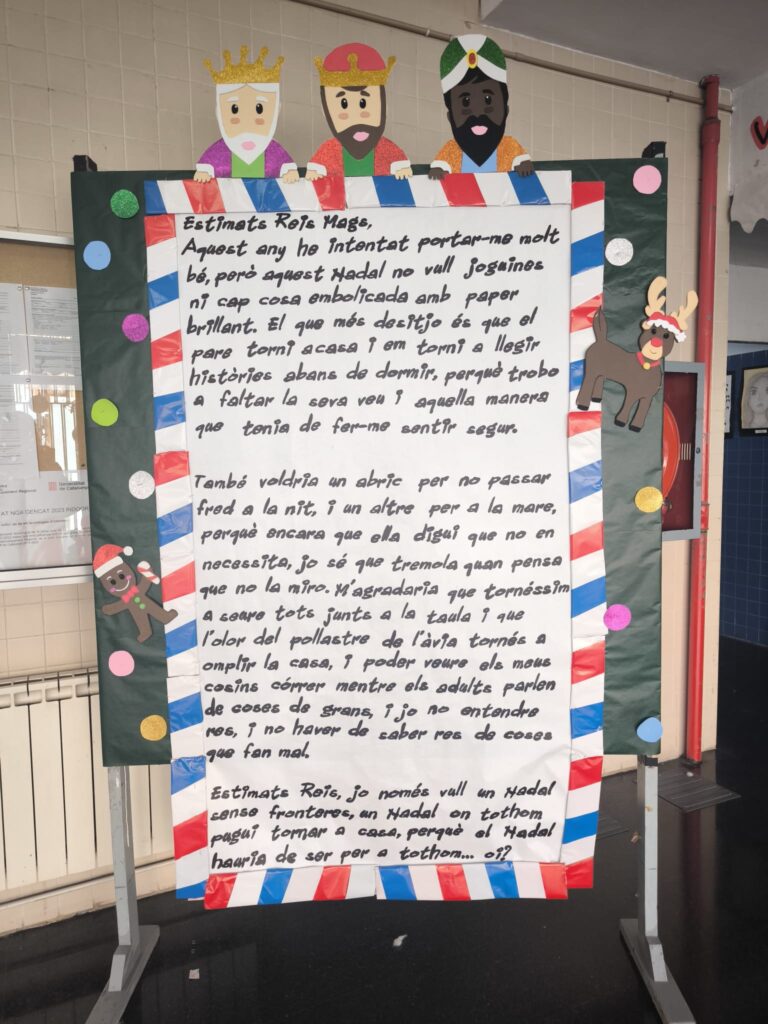 Estimats Reis Mags,
Aquest any he intentat portar-me molt
bé, però aquest Nadal no vull joguines
ni cap cosa embolicada amb paper
brillant. El que més desitjo és que el
pare torni a casa i em torni a llegir
històries abans de dormir, perquè trobo
a faltar la seva veu i aquella manera
que tenia de fer-me sentir segur.
També voldria un abric per no passar
fred a la nit, i un altre per a la mare,
perquè encara que ella digui que no en
necessita, jo sé que tremola quan pensa
que no la miro. M'agradaria que tornéssim
a seure tots junts a la taula i que
l'olor del pollastre de l'àvia tornés a
omplir la casa, i poder veure els meus
cosins córrer mentre els adults parlen
de coses de grans, i jo no entendre
res, i no haver de saber res de coses
que fan mal.
Estimats Reis, jo només vull un Nadal
sense fronteres, un Nadal on tothom
pugui tornar a casa, perquè el Nadal
hauria de ser per a tothom... oi?